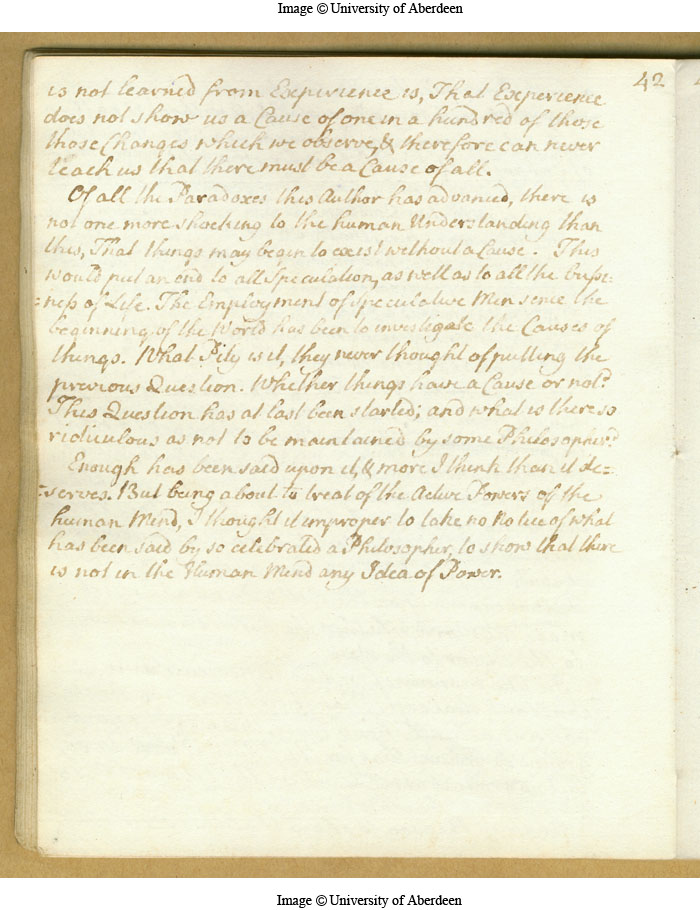 Image © University of Aberdeen
42
is not learned from Experience is, That Experience
does not show us a Cause of one in a hundred of those
those Changes which we observe, & therefore can never
teach us that there must be a Cause of all.
Of all the Paradoxes this Author has advanced, there is
not one more shocking to the human Understanding than
this, That things may begin to exist without a Cause. This
would put an end to all Speculation, as well as to all the busi-
=ness of Life. The Employment of speculative Men since the
beginning of the World has been to investigate the Causes of
things. What Pity is it, they never thought of putting the
previous Question. Whether things have a Cause or not?
This Question has at last been started; and what is there so
ridiculous as not to be maintained by some Philosopher?
Enough has been said upon it, & more I think than it de=
=serves. But being about to treat of the Active Powers of the
human Mind, I thought it improper to take no Notice of what
has been said by so celebrated a Philosopher, to show that there
is not in the Human Mind any Idea of Power.
Image © University of Aberdeen